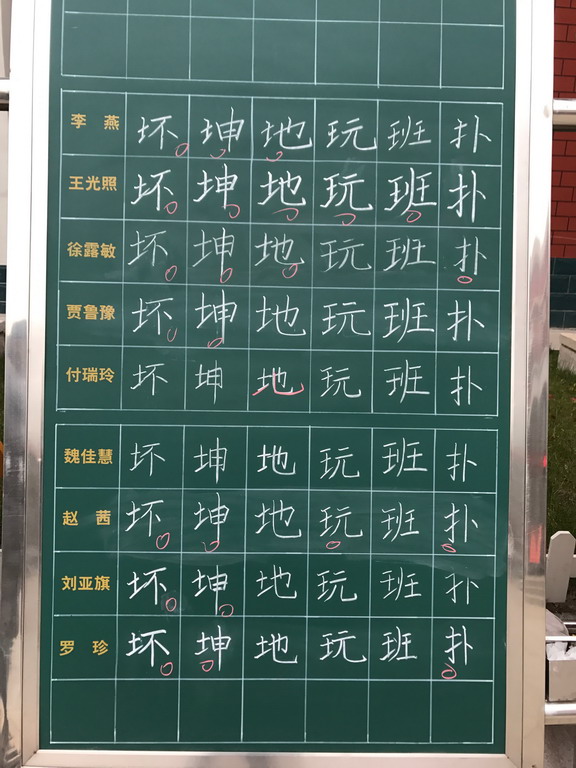 李燕 坏 坤 地 玩 班 扑
王光照 坏 坤 地 玩 班 扑
徐露敏 坏 坤 地 玩 班 扑
贾鲁豫 坏 坤 地 玩 班 扑
付瑞玲 坏 坤 地 玩 班 扑
魏佳慧 坏 坤 地 玩 班 扑
赵茜 坏 坤 地 玩 班 扑
刘亚旗 坏 坤 地 玩 班 扑
罗珍 坏 坤 地 玩 班 扑